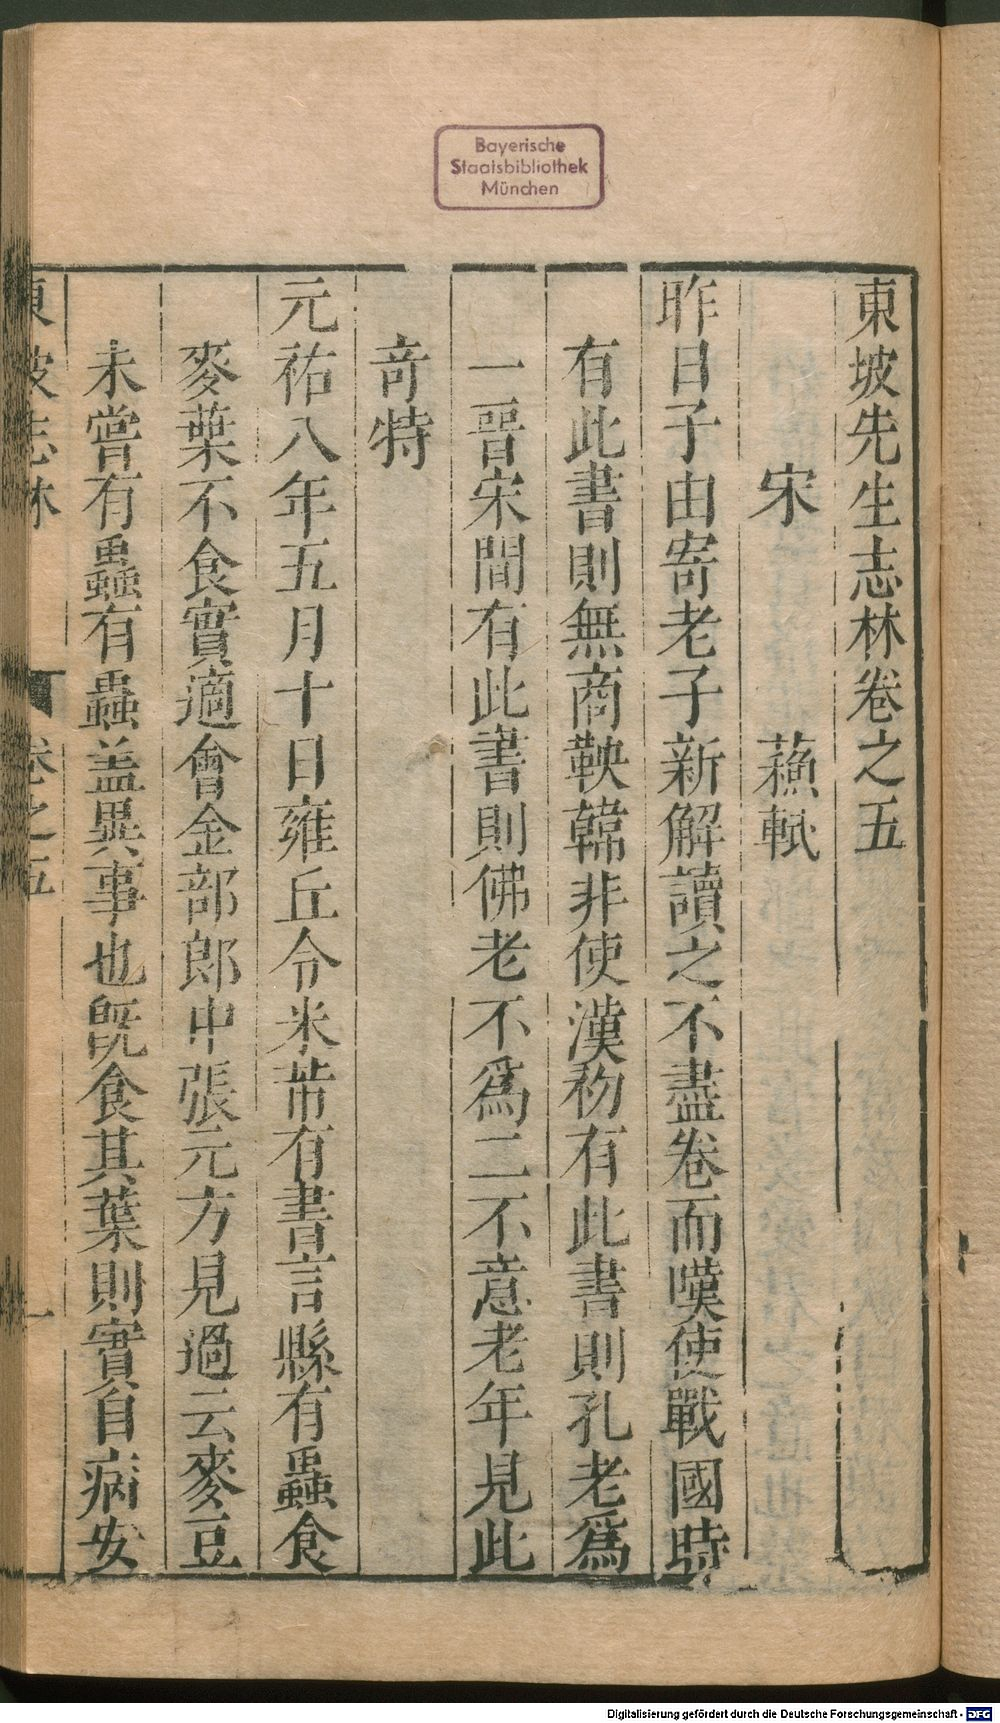 Bayerische
Staatsbibliothek
München
東坡先生志林卷之五
宋　蘓軾
昨日子由寄老子新解讀之不盡卷而嘆使戰國時
有此書則無商鞅韓非使漢初有此書則孔老爲
一晉宋間有此書則佛老不爲二不意老年見此
奇特
元祐八年五月十日雍丘令米芾有書言縣有蟲食
麥葉不食實適會金部郎中張元方見過云麥豆
未嘗有蟲有蟲盖異事也旣食其葉則實自病安
東坡志林　卷之五　一
Digitalisierung gefördert durch die Deutsche Forschungsgemeinschaft - DFG